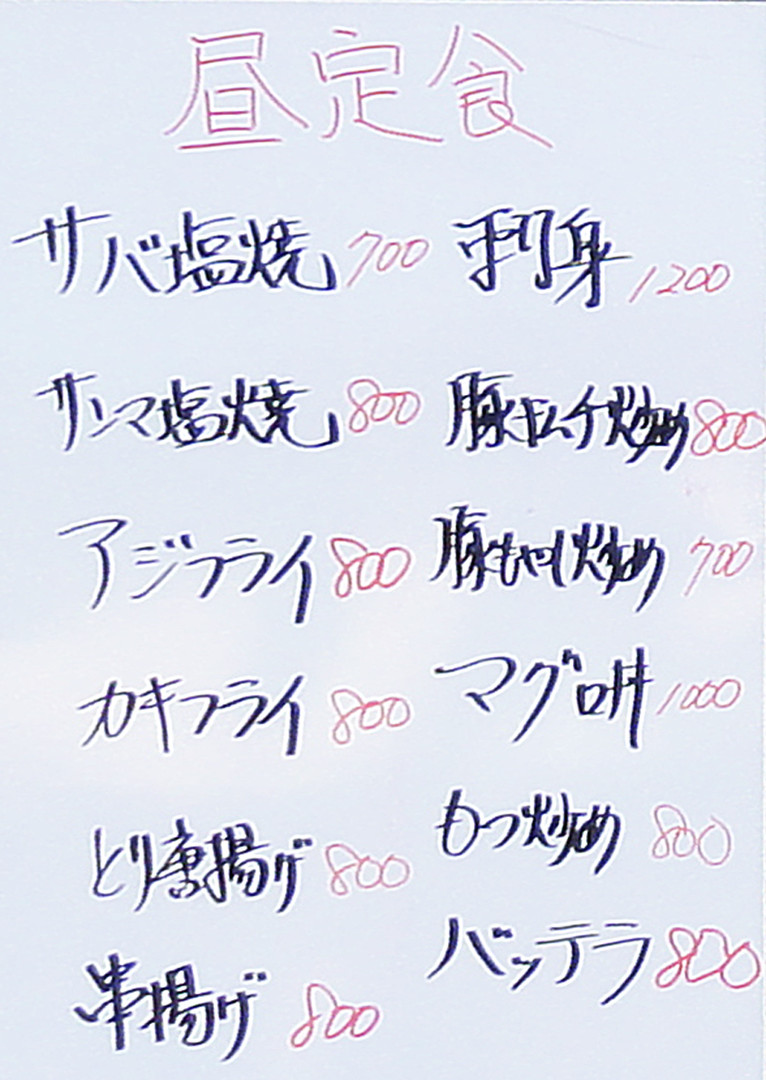 昼定食
サバ塩焼 700
サンマ塩焼 800
アジフライ 800
カキフライ 800
とり唐揚げ 800
串揚げ 800
刺身 1200
豚キムチ炒め 800
豚もやし炒め 700
マグロ丼 1000
もつ炒め 800
バッテラ 800